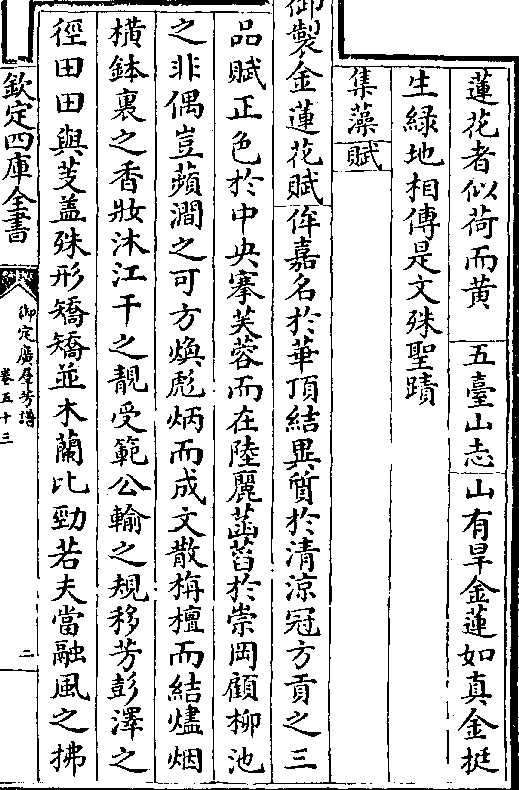 蓮花者似荷而黃　五臺山志山有旱金蓮如真金挺
生綠地相傳是文殊聖蹟
集藻賦
御製金蓮花賦侔嘉名於華頂結異質於清涼冠方貢之三
品賦正色於中央搴芙蓉而在陸麗菡萏於崇岡顧柳池
之非偶豈蘋澗之可方煥彪炳而成文散栴檀而結燼烟
橫鉢裏之香妝沐江干之靚受範公輸之規移芳彭澤之
徑田田與芰盖殊形矯矯並木蘭比勁若夫當融風之拂
欽定四庫全書
御定廣羣芳譜
卷五十三
二